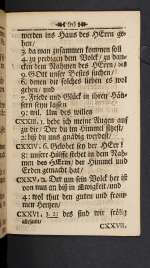 werden ins Haus des HErrn ge-
hen/
3. da man zusammen kommen soll
4. zu predigen dem Volck/ zu dan-
cken dem Nahmen des HErrn/ die
9. GOtt unser Bestes suchen/
6. denen die solches lieben es wol
gehen/ und
7. Friede und Glück in ihren
seyn lassen
9. Um des willen
CXXIII. 1. hebe ich meine Augen auf
zu dir/ Der du im Himmel sitzest/
2. biß du uns gnädig werdest/
CXXIV. 6. Gelobet sey der HErr!
8. unser Hülffe stehet in dem Nah-
men des HErrn/ der Himmel und
Erden gemacht hat/
CXXV. 2. Der um sein Volck her ist
von nun an biß in Ewigkeit/ und
4. wol thut den guten und from-
men Hertzen/
CXXVI. 1. 2. 3. des sind wir frölig
allezumal/
CXXVII.